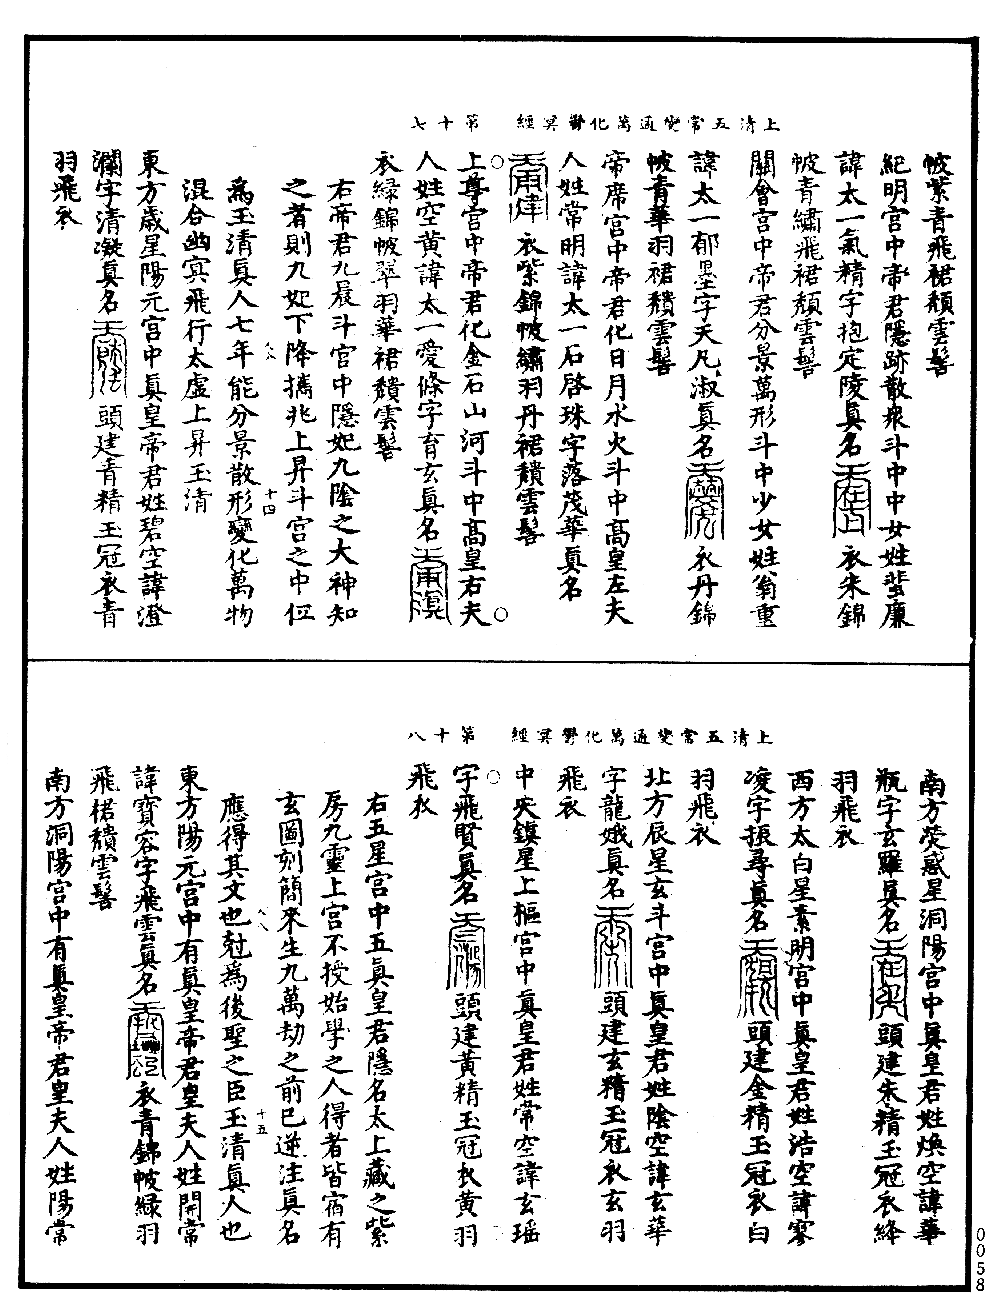 上清五常變通萬化鬱冥經 第十七
帔紫青飛裙頽雲髻
紀明宮中帝君隱跡散衆斗中中女姓蜚廉
諱太一氣精字抱定陵真名 衣朱錦
帔青繡飛裙頽雲髻
關會宮中帝君分景萬形斗中少女姓翁重
諱太一郁墨字天凡淑真名 衣丹錦
帔青華羽裙頽雲髻
帝席宮中帝君化日月水火斗中高皇左夫
人姓常明諱太一石啓珠字落茂華真名
衣紫錦帔繡羽丹裙頽雲髻
上尊宮中帝君化金石山河斗中高皇右夫
人姓空黃諱太一愛條字育玄真名
衣緑錦帔翠羽華裙頽雲髻
右帝君九晨斗宮中隱妃九陰之大神知
之者則九妃下降攜兆上昇斗宮之中位
爲玉清真人七年能分景散形變化萬物
十四
混合幽冥飛行太虛上昇玉清
東方歲星陽元宮中真皇帝君姓碧空諱澄
瀾字清凝真名 頭建青精玉冠衣青
羽飛衣
上清五常變通萬化鬱冥經 第十八
南方熒惑星洞陽宮中真皇君姓煥空諱華
瓶字玄羅真名 頭建朱精玉冠衣絳
羽飛衣
西方太白星素明宮中真皇君姓浩空諱寥
凌字振尋真名 頭建金精玉冠衣白
羽飛衣
北方辰星玄斗宮中真皇君姓陰空諱玄華
字龍娥真名 頭建玄精玉冠衣玄羽
飛衣
中央鎮星上樞宮中真皇君姓常空諱玄瑶
字飛賢真名 頭建黃精玉冠衣黃羽
飛衣
右五星宮中五真皇君隱名太上藏之紫
房九靈上宮不授始學之人得者皆宿有
玄圖刻簡來生九萬劫之前已逆注真名
應得其文也尅爲後聖之臣玉清真人也
十五
東方陽元宮中有真皇帝君皇夫人姓開常
諱寶容字飛雲真名 衣青錦帔緑羽
飛裙頽雲髻
南方洞陽宮中有真皇帝君皇夫人姓陽常
0058